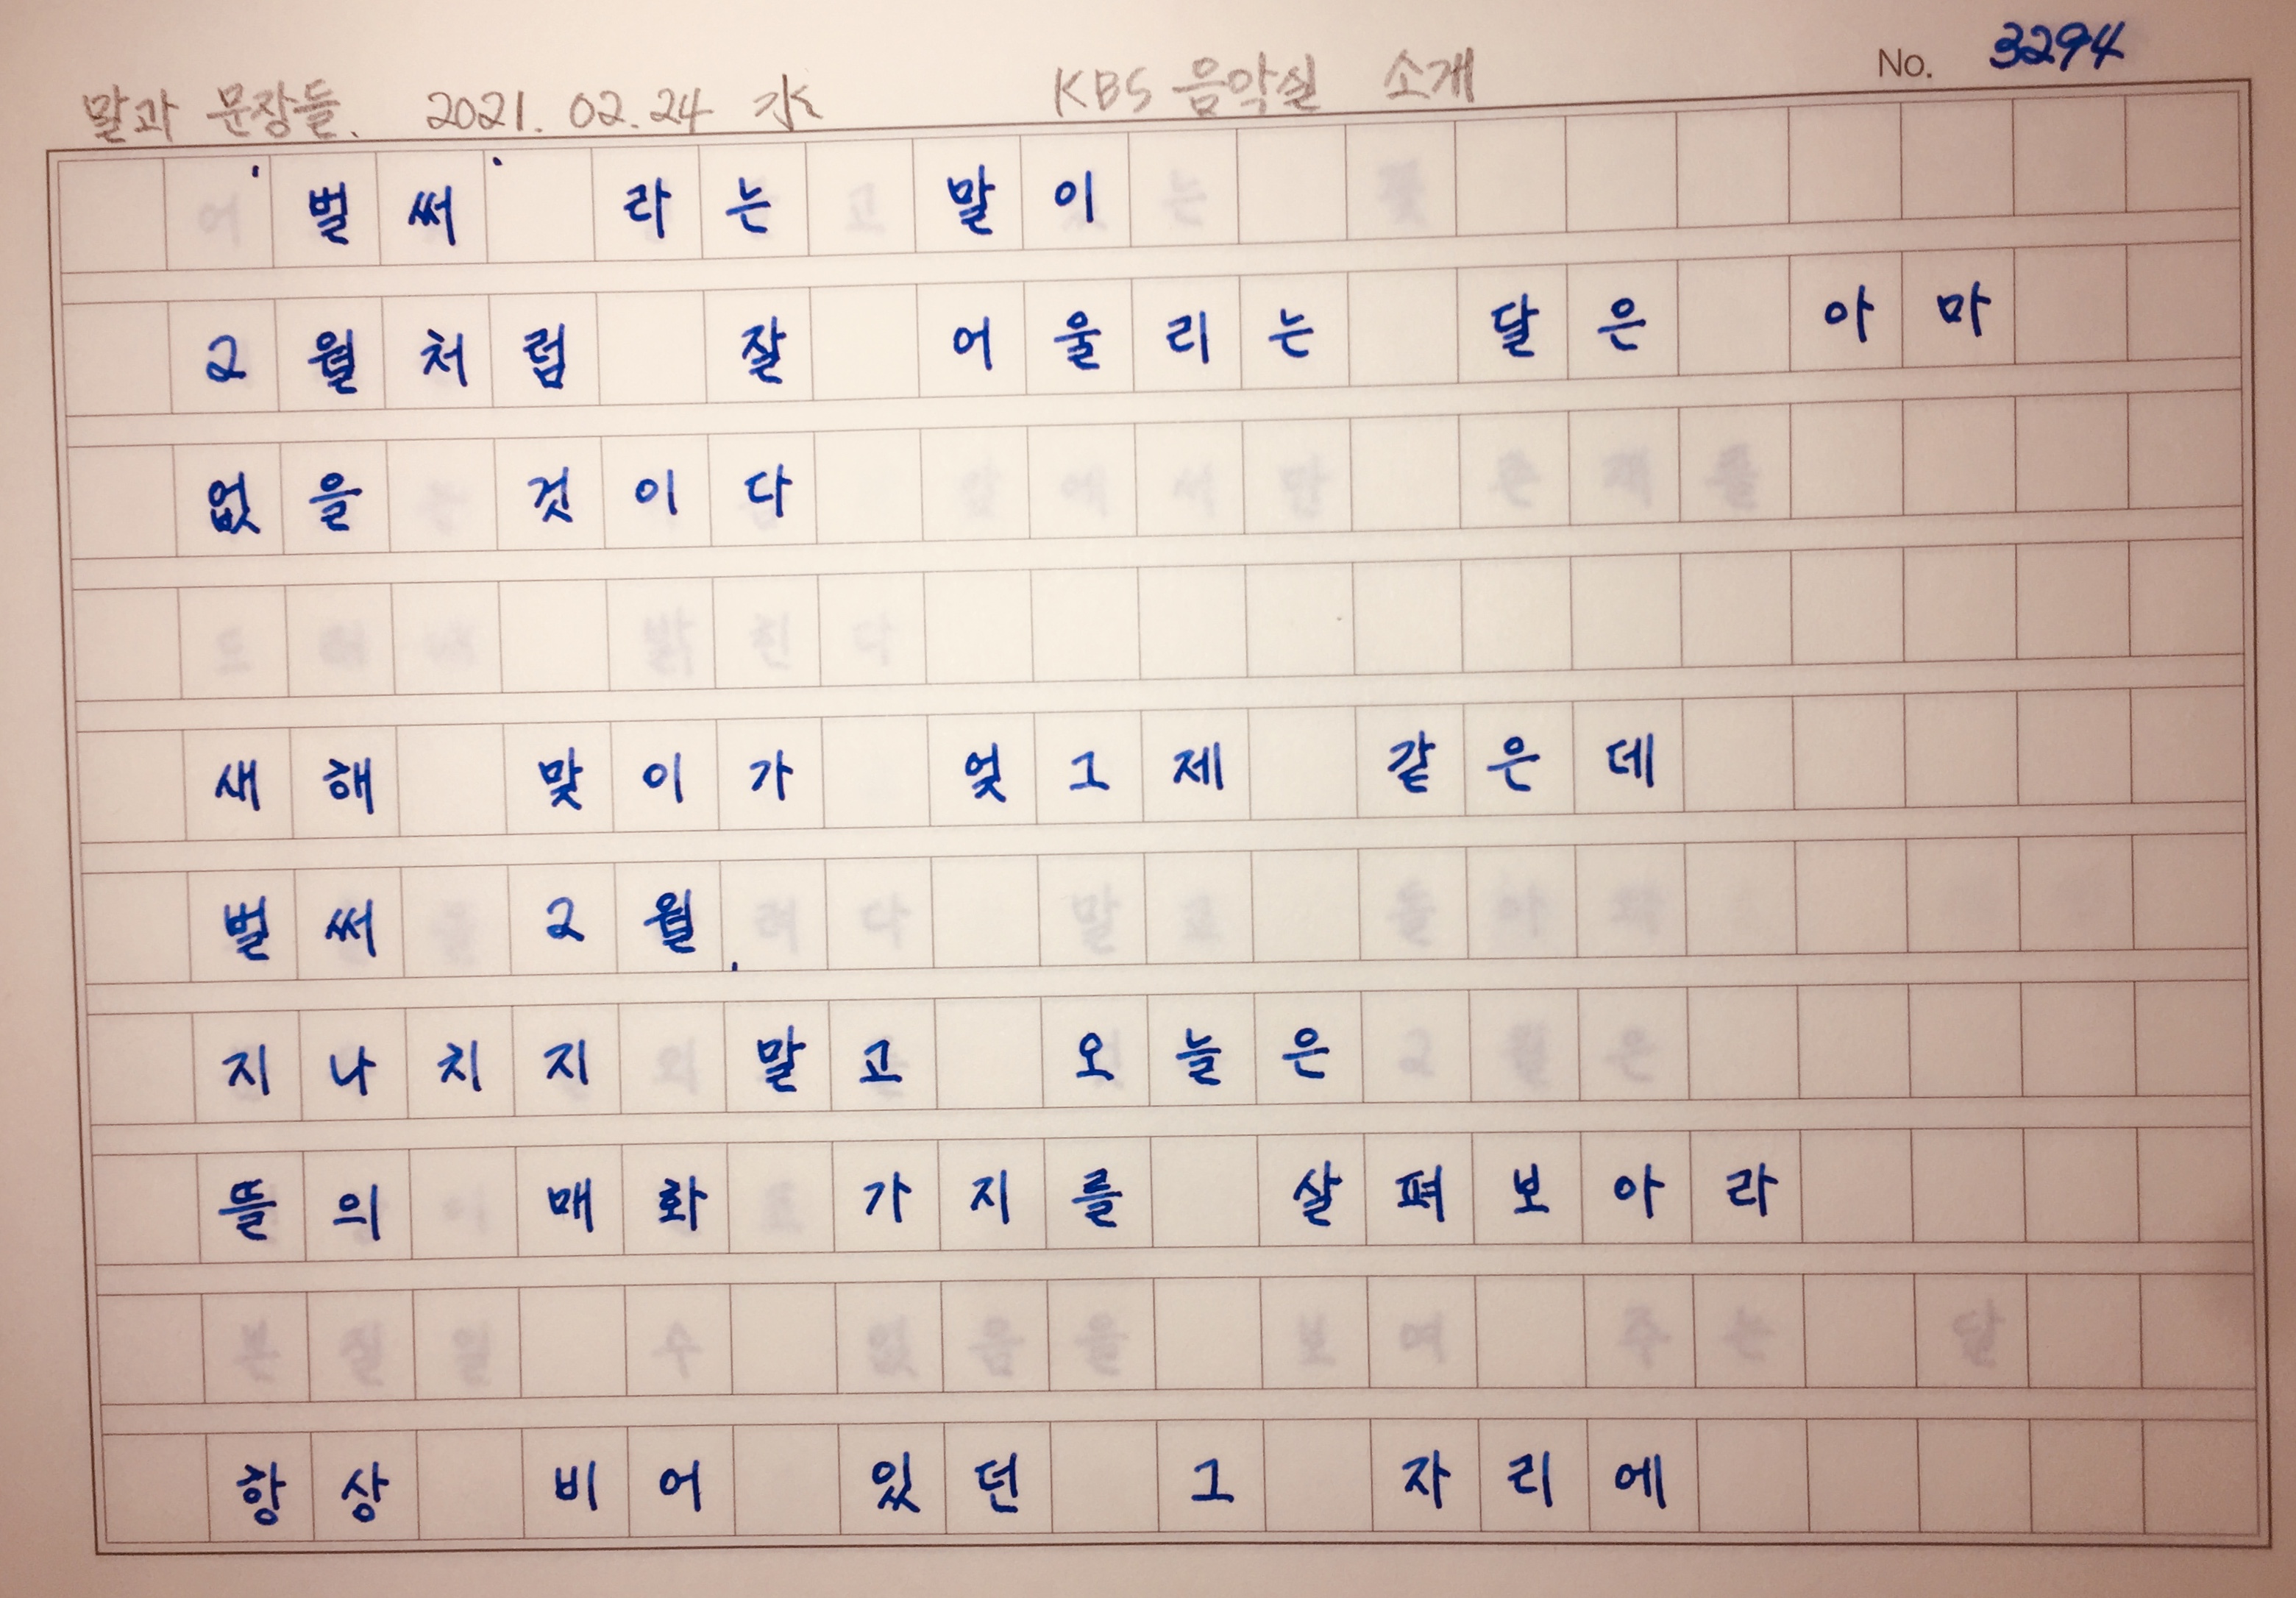 말과 문장들. 2021. 02. 24 水 KBS 음악실 소개 No. 3294
'벌써' 라는 말이
2월처럼 잘 어울리는 달은 아마
없을 것이다
새해 맞이가 엊그제 같은데
벌써 2월.
지나치지 말고 오늘은
뜰의 매화 가지를 살펴보아라
항상 비어 있던 그 자리에